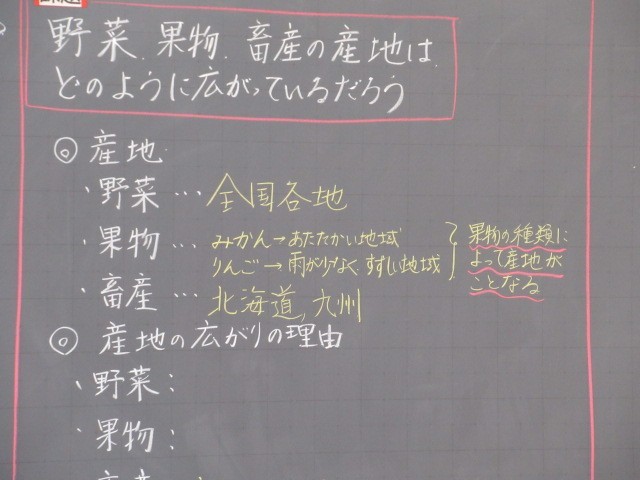 野菜、果物、畜産の産地は、
どのように広がっているだろう
◎ 産地
・野菜…全国各地
・果物…みかん→あたたかい地域
りんご→雨が少なく、すずしい地域
果物の種類に
よって産地が
ことなる
・畜産…北海道、九州
◎ 産地の広がりの理由
・野菜：
・果物：